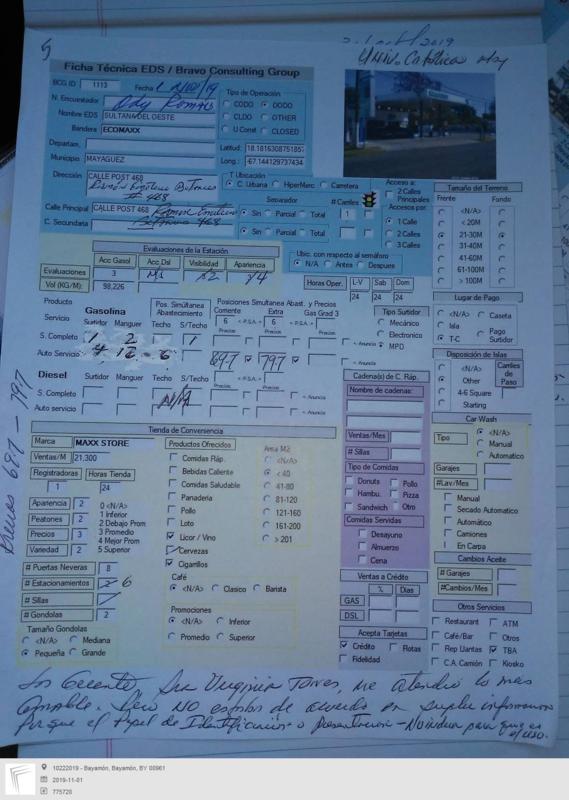 5
Univ. Católica
Ficha Técnica EDS / Bravo Consulting Group
BCG ID 1113 Fecha 1 Nov/19
Tipo de Operación
N. Encuestador
CODO DODO
Nombre EDS SULTANA DEL OESTE
CLDO OTHER
Bandera ECOMAXX
U Const CLOSED
Departam.
Latitud: 18.1816308751857
Municipio MAYAGUEZ
Long.: -67.144129737434
Dirección CALLE POST 468
T Ubicación
C. Urbana HiperMarc Carretera
# 468
Separador
# Carriles
Calle Principal CALLE POST 468
Sin Parcial Total 1
C. Secundaria
Sin Parcial Total
Acceso a:
2 Calles Principales
Accesos por:
1 Calle
2 Calles
3 Calles
Ubic. con respecto al semáforo
N/A Antes Despues
Tamaño del Terreno
Frente Fondo
<N/A>
< 20M
21-30M
31-40M
41-60M
61-100M
> 100M
Evaluaciones de la Estación
Acc Gasol Acc Dsl Visibilidad Apariencia
Evaluaciones 3
Vol (KG/M) 98,226
Horas Oper. L-V Sab Dom
24 24 24
Lugar de Pago
<N/A> Caseta
Isla
T-C Pago Surtidor
Producto Gasolina
Servicio Surtidor Manguer
Pos. Simultanea Abastecimiento
Techo S/Techo
Posiciones Simultanea Abast. y Precios
Corriente Extra Gas Grad 3
6 < P.S.A.> 6 < P.S.A.>
Precios Precios Precios
S. Completo 1 2 1 < Anuncio
Auto Servicio 12 6 69.7 79.7 < Anuncio
Tipo Surtidor
Mecánico
Electronico
MPD
Disposición de Islas
<N/A>
Other
4-6 Square
Starting
Carriles de Paso
Diesel Surtidor Manguer Techo S/Techo
< P.S.A.>
Precios Precios
S. Completo N/A < Anuncio
Auto servicio < Anuncio
Precios 69.7 - 79.7
Cadena(s) de C. Ráp.
Nombre de cadenas:
Ventas/Mes
# Sillas
Tipo de Comidas
Donuts Pollo
Hambu. Pizza
Sandwich Otro
Comidas Servidas
Desayuno
Almuerzo
Cena
Ventas a Crédito
% Dias
GAS
DSL
Acepta Tarjetas
Crédito Flotas
Fidelidad
Car Wash
Tipo <N/A>
Manual
Automatico
Garajes
#Lav/Mes
Manual
Secado Automatico
Automático
Camiones
En Carpa
Cambios Aceite
# Garajes
#Cambios/Mes
Otros Servicios
Restaurant ATM
Café/Bar Otros
Rep Llantas TBA
C.A. Camión Kiosko
Tienda de Conveniencia
Marca MAXX STORE
Ventas/M 21,300
Registradoras Horas Tienda
1 24
Apariencia 2
Peatones 2
Precios 3
Variedad 2
0 <N/A>
1 Inferior
2 Debajo Prom
3 Promedio
4 Mejor Prom
5 Superior
# Puertas Neveras 8
# Estacionamientos 6
# Sillas
# Gondolas 2
Tamaño Gondolas
<N/A> Mediana
Pequeña Grande
Productos Ofrecidos
Comidas Ráp.
Bebidas Caliente
Comidas Saludable
Panaderia
Pollo
Loto
Licor / Vino
Cervezas
Cigarrillos
Area M2
<N/A>
< 40
41-80
81-120
121-160
161-200
> 201
Café
<N/A> Clasico Barista
Promociones
<N/A> Inferior
Promedio Superior
La Gerente Sra Virginia Torres, me atendió lo más
amable. Pero NO estaba de acuerdo en suplir informacion
Porque el Papel de Identificación o presentacion - No indica para que es
el uso.
10222019 - Bayamón, Bayamón, BY 00961
2019-11-01
775720